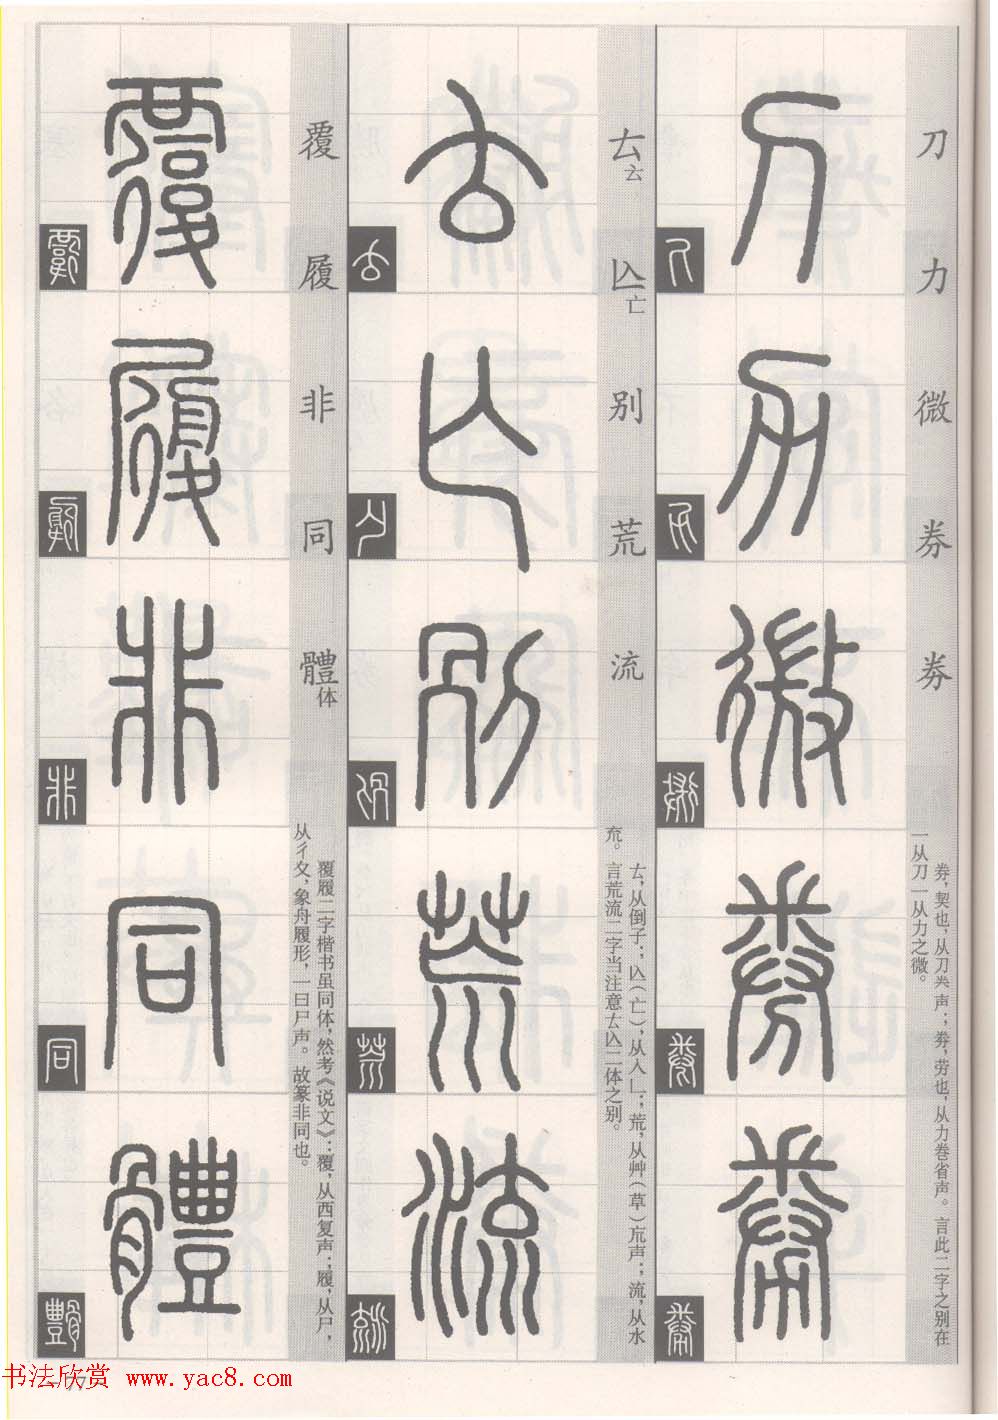 刀力微券劵
券，契也，从刀𢍏声；劵，劳也，从力卷省声。言此二字之别在
一从刀一从力之微。
𠫓亾别荒流
亡
𠫓，从倒子；亾（亡），从入乚；荒，从艸（草）巟声；流，从水
㐬。言荒流二字当注意𠫓亾二体之别。
覆履非同體
体
覆履二字楷书虽同体，然考《说文》：覆，从襾复声；履，从尸，
从彳夊，象舟履形，一曰尸声。故篆非同也。
书法欣赏 www.yac8.com